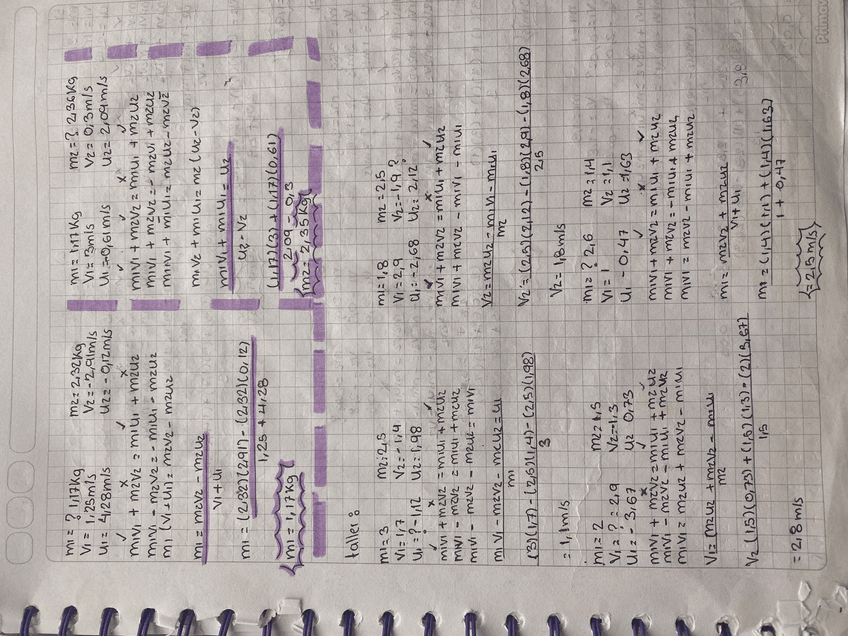 m1 = ? 1,17Kg
m2 = 2,32Kg
V1 = 1,25m/s
V2 = -2,91m/s
U1 = 4,28m/s
U2 = -0,12m/s
m1V1 + m2V2 = m1U1 + m2U2
m1V1 - m2V2 = -m1U1 - m2U2
m1 (V1 + U1) = m2V2 - m2U2
m1 = m2V2 - m2U2
V1 + U1
m1 = (2,32)(2,91) - (2,32)(0,12)
1,25 + 4,28
m1 = 1,17Kg
m1 = 1,17Kg
m2 = ? 2,36Kg
V1 = 3m/s
V2 = 0,3m/s
U1 = 0,61m/s
U2 = 2,09m/s
m1V1 + m2V2 = m1U1 + m2U2
m1V1 + m2V2 = -m2V1 + m2U2
m1V1 + m1U1 = m2U2 - m2V2
m1V2 + m1U1 = m2 (U2 - V2)
m1V1 + m1U1 = U2
U2 - V2
(1,17)(3) + (1,17)(0,61)
2,09 - 0,3
m2 = 2,35 Kg
taller:
m1 = 3
m2 = 2,5
V1 = 1,7
V2 = -1,4
U1 = ? -1,12
U2 = 1,98
m1V1 + m2V2 = m1U1 + m2U2
m1V1 - m2V2 = m1U1 + m2U2
m1V1 - m2V2 - m2U2 = m1V1
m1V1 - m2V2 - m2U2 = U1
m1
(3)(1,7) - (2,6)(1,4) - (2,5)(1,98)
3
= 1,1m/s
m1 = 1,8
m2 = 2,5
V1 = 2,9
V2 = -1,9 ?
U1 = -2,68
U2 = 2,12
m1V1 + m2V2 = m1U1 + m2U2
m1V1 + m2V2 - m1V1 - m1U1
V2 = m2U2 = m1V1 - m1U1
m2
V2 = (2,5)(2,12) - (1,8)(2,9) - (1,8)(2,68)
2,5
V2 = 1,8m/s
m1 = 2
m2 = 1,5
V1 = ? = 2,9
V2 = -1,3
U1 = -3,67
U2 0,73
m1V1 + m2V2 = m1U1 + m2U2
m1V1 - m2V2 - m1U1 + m2V2
m1V1 = m2U2 + m2V2 - m1U1
V1 = (m2U2 + m2V2 - m1U1
m2
V2 (1,5)(0,73) + (1,5)(1,3) - (2)(3,67)
1,5
= 2,8m/s
m1 = ? 2,6
m2 = 1,4
V1 = 1
V2 = 1,1
U1 - 0,47
U2 = 1,63
m1V1 + m2V2 = m1U1 + m2U2
m1V1 + m2V2 = -m1U1 + m2U2
m1V1 = m2V2 - m1U1 + m2U2
m1 = m2V2 + m2U2
V1 + U1
m1 = (1,4)(1,1) + (1,4)(1,63)
1 + 0,47
= 2,5m/s